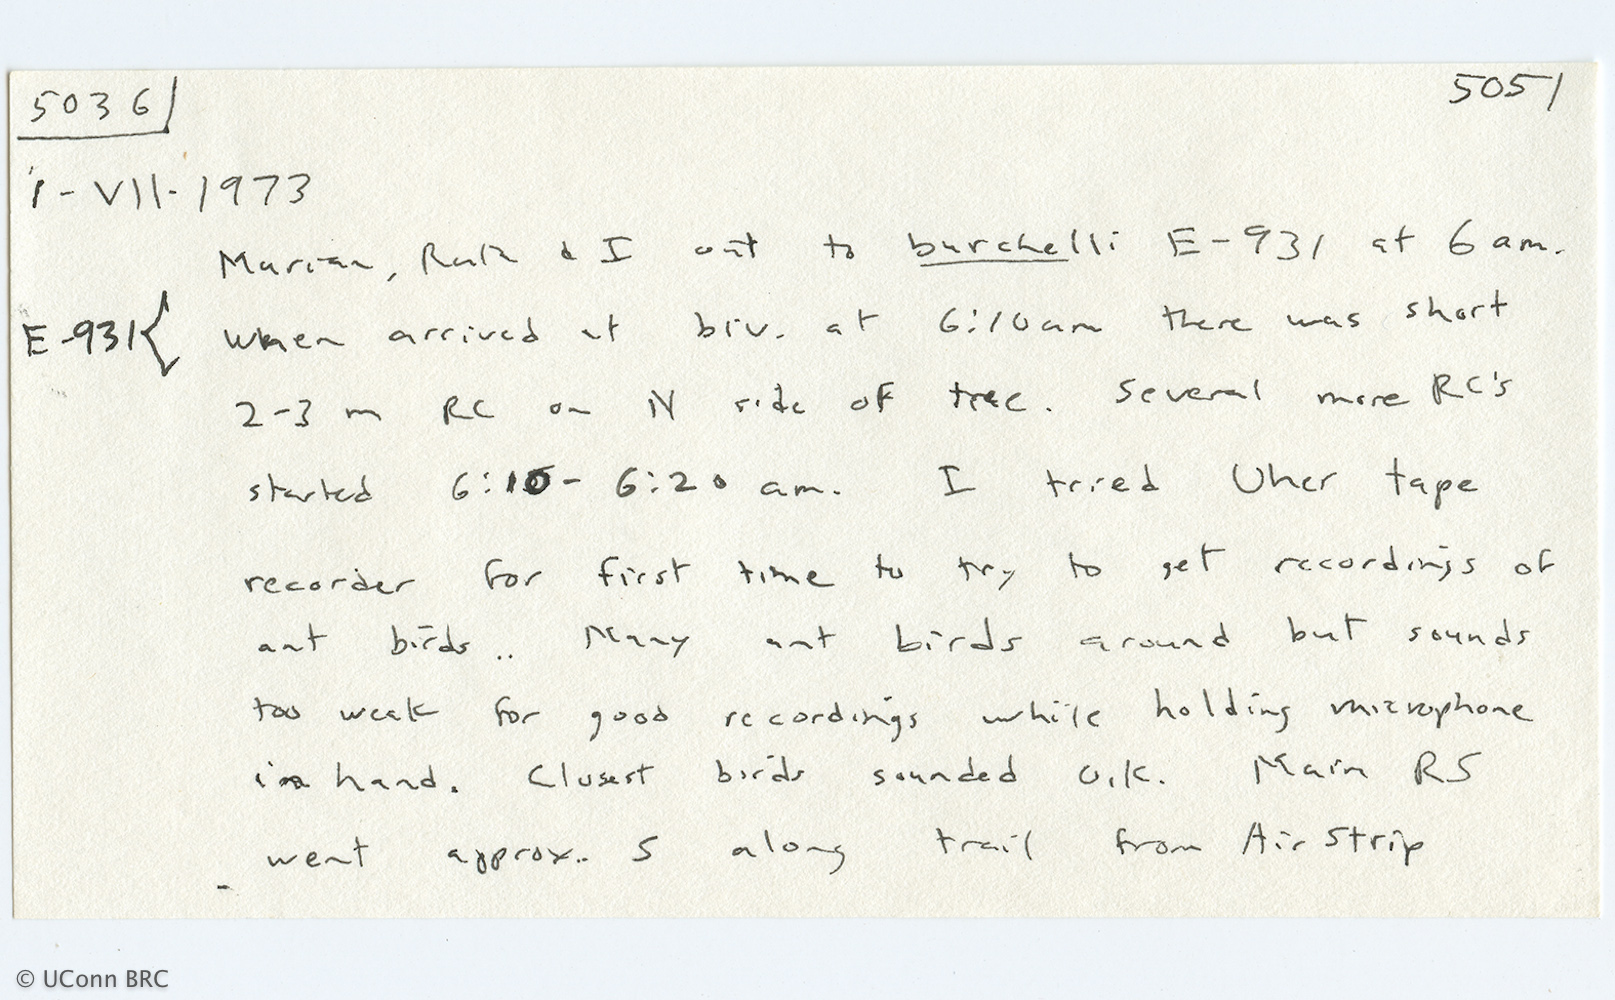 5036
5051
1-VII-1973
Marian, Ruth & I out to burchelli E-931 at 6 am.
E-931{ When arrived at biv. at 6:10am there was short
2-3 m RC on N side of tree. Several more RC's
started 6:10-6:20 am. I tried Uher tape
recorder for first time to try to get recordings of
ant birds.. Many ant birds around but sounds
too weak for good recordings while holding microphone
in hand. Closest birds sounded O.K. Main RS
went approx.. S along trail from Air Strip
© UConn BRC